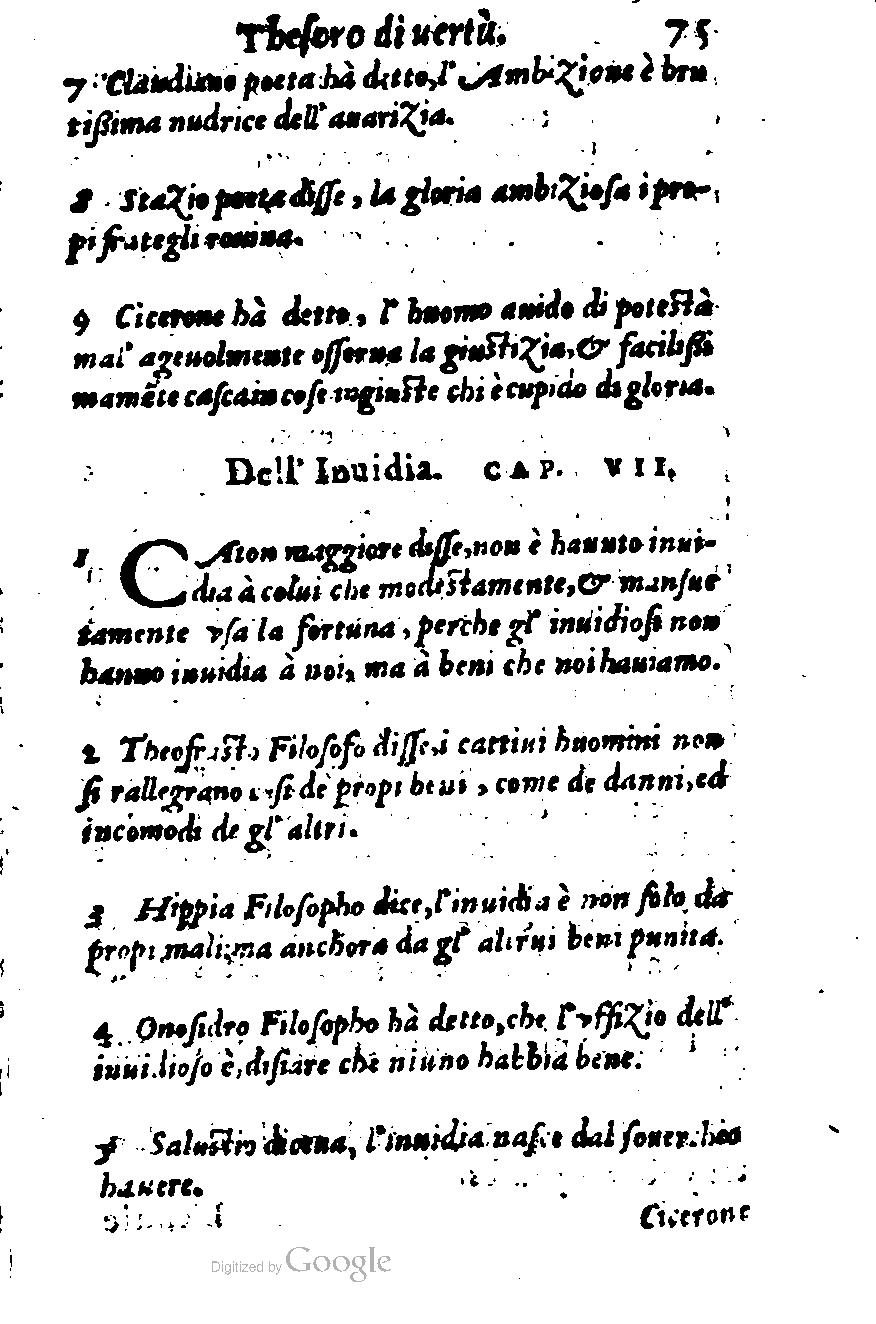 Thesoro di uertù. 75
7 Claudiano poeta hà detto, l' Ambizione è bru
tißima nudrice dell' auarizia.
8 Stazio poeta diſſe, la gloria ambizioſa i pro-
pi frategli rouina.
9 Cicerone hà detto, l' huomo auido di poteſtà
mal' ageuolmente oſſerua la giuſtizia, & facilißi
mamẽte caſca in coſe ingiuſte chi è cupido di gloria.
Dell' Inuidia. CAP. VII.
1 CAton maggiore diſſe, non è hauuto inui-
dia à colui che modeſtamente, & manſue
tamente vſa la fortuna, perche gl' inuidioſi non
hanno inuidia à noi, ma à beni che noi hauiamo.
2 Theofraſto Filoſofo diſſe, i cattiui huomini non
ſi rallegrano coſi de propi beni, come de danni, ed
incomodi de gl' altri.
3 Hippia Filoſopho dice, l'inuidia è non ſolo da
propi mali, ma anchora da gl' altrui beni punita.
4 Onoſidro Filoſopho hà detto, che l'vffizio dell'
inuidioſo è, diſiare che niuno habbia bene.
5 Saluſtio diceua, l'inuidia naſce dal ſouerchio
hauere.
Cicerone
Digitized by Google